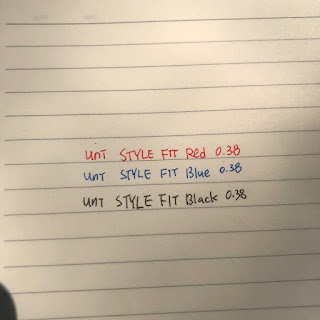 UNI STYLE FIT Red 0.38
UNI STYLE FIT Blue 0.38
UNI STYLE FIT Black 0.38